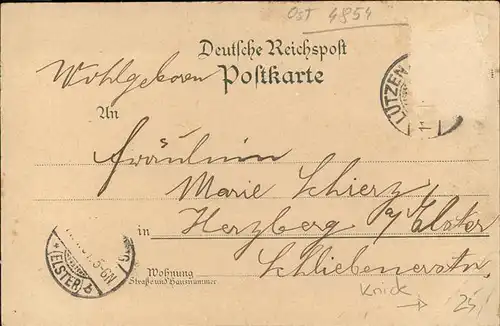 Ost 4854
Deutsche Reichspost
Postkarte
Wohlgeboren
LÜTZEN
11
An
Fräulein
Marie Schierz
in Herzberg a/Elster
(ELSTER) b
5-6N
Wohnung
Straße und Hausnummer
Schliebenerstr.
Knick → 25,